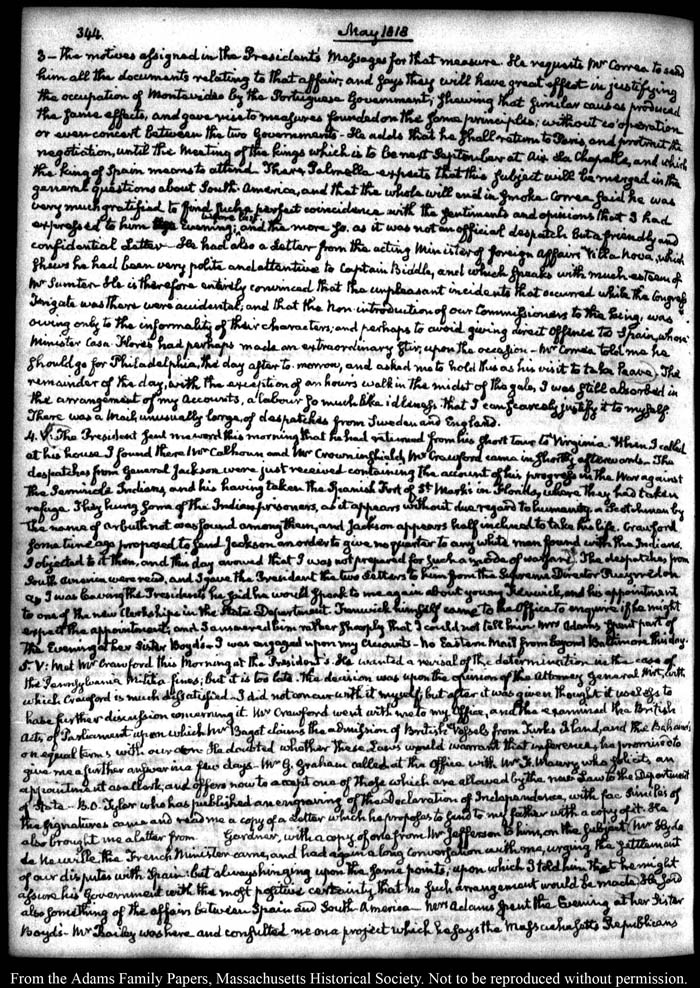 344.
May 1818
3 — the motives assigned in the President's Messages for that measure. He requests Mr Correa to send
him all the documents relating to that affair, and says they will have great effect in justifying
the occupation of Montevideo by the Portuguese Government; shewing that similar causes produced
the same effects, and gave rise to measures founded on the same principles; without co'operation
or even concert between the two Governments — He adds that he shall return to Paris, and protract the
negotiation, until the Meeting of the kings which is to be next September at Aix la Chapelle, and which
the king of Spain means to attend. There Palmella expects that this subject will be merged in the
general questions about South-America, and that the whole will end in smoke. Correa said he was
very much gratified to find such a perfect coincidence with the sentiments and opinions that I had
expressed to him evening before last; and the more so, as it was not an official despatch but a friendly and
confidential Letter — He had also a Letter from the acting Minister of foreign Affairs Villa Nova, which
shews he had been very polite and attentive to Captain Biddle, and which speaks with much esteem of
Mr Sumter. He is therefore entirely convinced that the unpleasant incidents that occurred while the Congress
Frigate was there were accidental; and that the non-introduction of our Commissioners to the king, was
owing only to the informality of their characters; and perhaps to avoid giving direct offence to Spain, whose
Minister Casa-Flores had perhaps made an extraordinary stir, upon the occasion — Mr Correa told me he
should go for Philadelphia, the day after to-morrow, and asked me to hold this as his visit to take leave. The
remainder of the day, with the exception of an hours walk in the midst of the gale, I was still absorbed in
the arrangement of my Accounts, a labour so much like idleness that I can scarcely justify it to myself.
There was a Mail unusually large, of despatches from Sweden and England.
4. V: The President sent me word this morning that he had returned from his short tour to Virginia. When I called
at his house I found there Mr Calhoun and Mr Crowninshield, Mr Crawford came in shortly afterwards. The
despatches from General Jackson were just received containing the account of his progress in the War against
the Seminole Indians, and his having taken the Spanish Fort of St Marks in Florida, where they had taken
refuge. They hung some of the Indian prisoners, as it appears without due regard to humanity. a Scotchman by
the name of Arbuthnot was found among them, and Jackson appears half inclined to take his life. Crawford
some time ago proposed to send Jackson an order to give no quarter to any white man found with the Indians.
I objected to it then, and this day avowed that I was not prepared for such a mode of warfare. The despatches from
South America were read, and I gave the President the two Letters to him from the Supreme Director Pueyrredon.
As I was leaving the President's he said he would speak to me again about young Fenwick, and his appointment
to one of the new Clerkships in the State Department. Fenwick himself came to the Office to enquire if he might
expect the appointment; and I answered him rather sharply that I could not tell him. Mrs Adams spent part of
the Evening at her Sister Boyd's — I was engaged upon my Accounts — No Eastern Mail from beyond Baltimore this day.
5. V: Met Mr Crawford this Morning at the President's. He wanted a reversal of the determination in the case of
the Pennsylvania Militia fines; but it is too late. The decision was upon the opinion of the Attorney General Wirt, with
which Crawford is much dissatisfied. I did not concur with it myself, but after it was given thought it useless to
have further discussion concerning it. Mr Crawford went with me to my Office, and there examined the British
Acts of Parliament upon which Mr Bagot claims the admission of British Vessels from Turks Island, and the Bahamas,
on equal terms with our own. He doubted whether these Laws would warrant that inference; he promised to
give me a further answer in a few days. Mr G. Graham called at the Office with Mr F. Maury, who solicits an
appointment as a Clerk, and offers now to accept one of those which are allowed by the new Law to the Department
of State — B. O. Tyler who has published an engraving of the Declaration of Independence, with fac similes of
the signatures came and read me a copy of a Letter which he proposes to send to my father with a copy of it. He
also brought me a letter from Gardner, with a copy of one from Mr Jefferson to him, on the subject. Mr Hyde
de Neuville, the French Minister came, and had again a long Conversation with me, urging the settlement
of our disputes with Spain: but always hinging upon the same points; upon which I told him that he might
assure his Government with the most positive certainty that no such arrangement would be made. He said
also something of the affairs between Spain and South America — Mrs Adams spent the Evening at her Sister
Boyd's — Mr Bailey was here and consulted me on a project which he says the Massachusetts Republicans
From the Adams Family Papers, Massachusetts Historical Society. Not to be reproduced without permission.